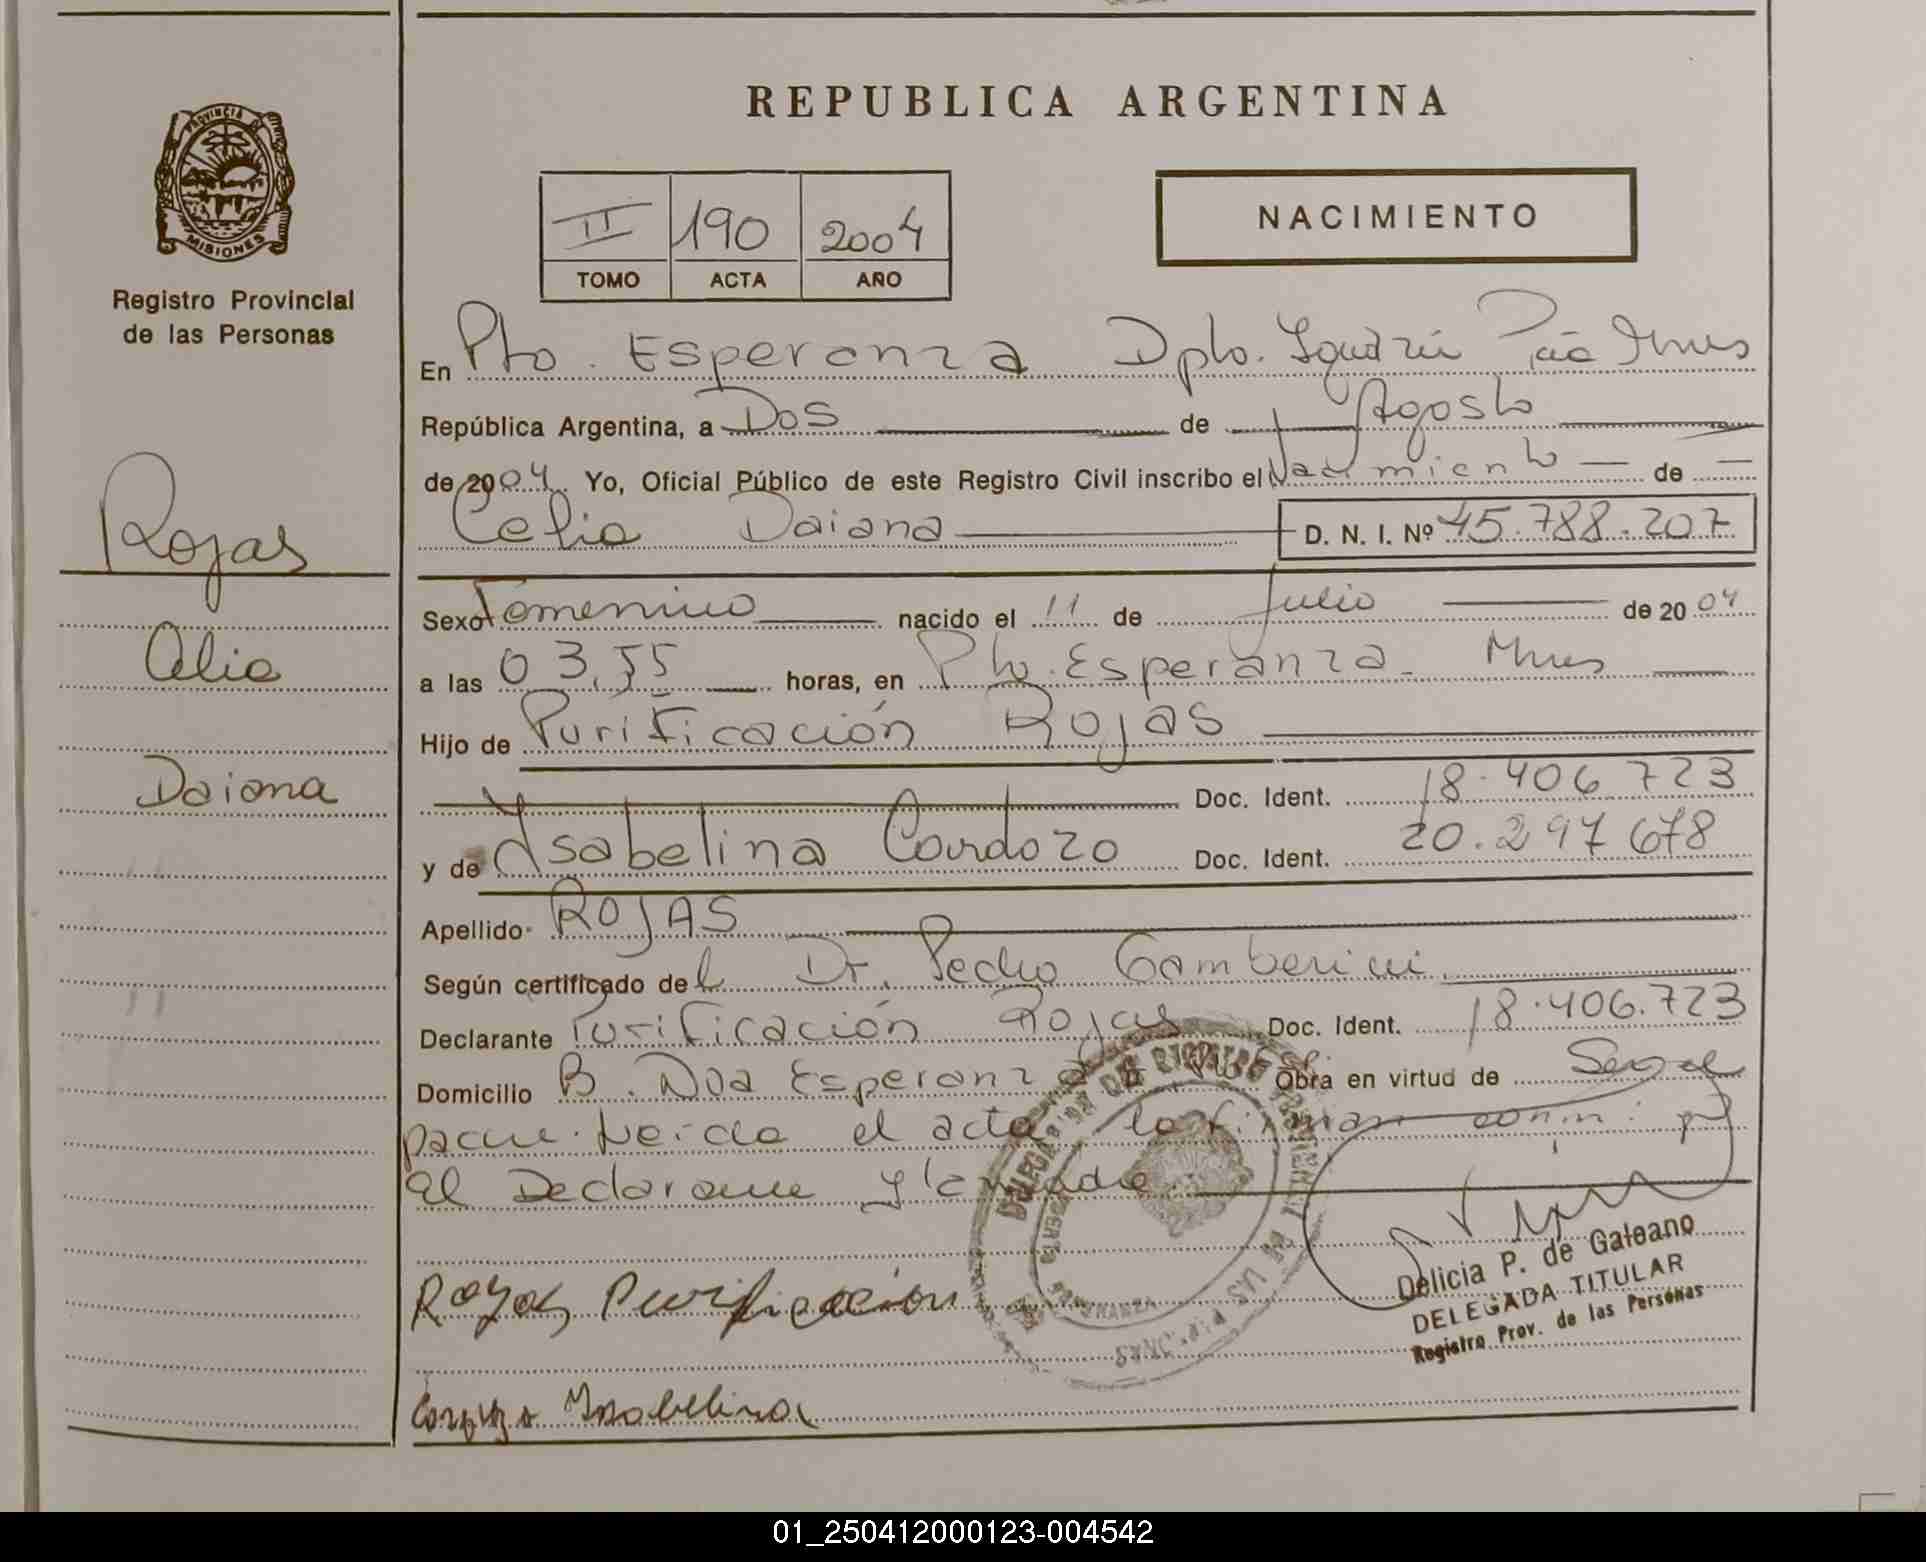 REPUBLICA ARGENTINA
PROVINCIA DE
MISIONES
Registro Provincial
de las Personas
II 190 2004
TOMO ACTA AÑO
NACIMIENTO
En Pto. Esperanza Dpto. Iguazú Mnes
República Argentina, a Dos de Agosto
de 2004 Yo, Oficial Público de este Registro Civil inscribo el Nacimiento de
Celia Daiana D. N. I. Nº 45.788.207
Rojas
Celia
Daiana
Sexo Femenino nacido el 11 de Julio de 2004
a las 03,55 horas, en Pto. Esperanza - Mnes
Hijo de Purificación Rojas
Doc. Ident. 18.406.723
y de Isabelina Cardozo Doc. Ident. 20.297.678
Apellido ROJAS
Según certificado del Dr. Pedro Gamberini
Declarante Purificación Rojas Doc. Ident. 18.406.723
Domicilio B. Esperanza Obra en virtud de
Leida el acta la firman conmigo
el Declarante y la madre
Rojas Purificación
Isabelina
Delicia P. de Galeano
DELEGADA TITULAR
Registro Prov. de las Personas
01_250412000123-004542